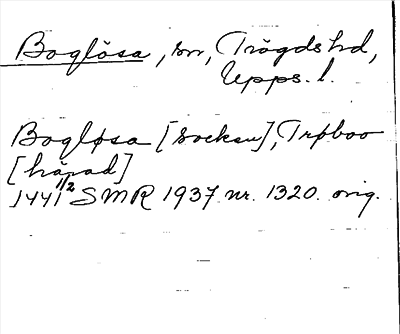 Boglösa, sn, Trögds hd,
Upps. l.
Bogløsa [socken], Trøboo
[härad]
1441 1/2 SMR 1937 nr. 1320. orig.